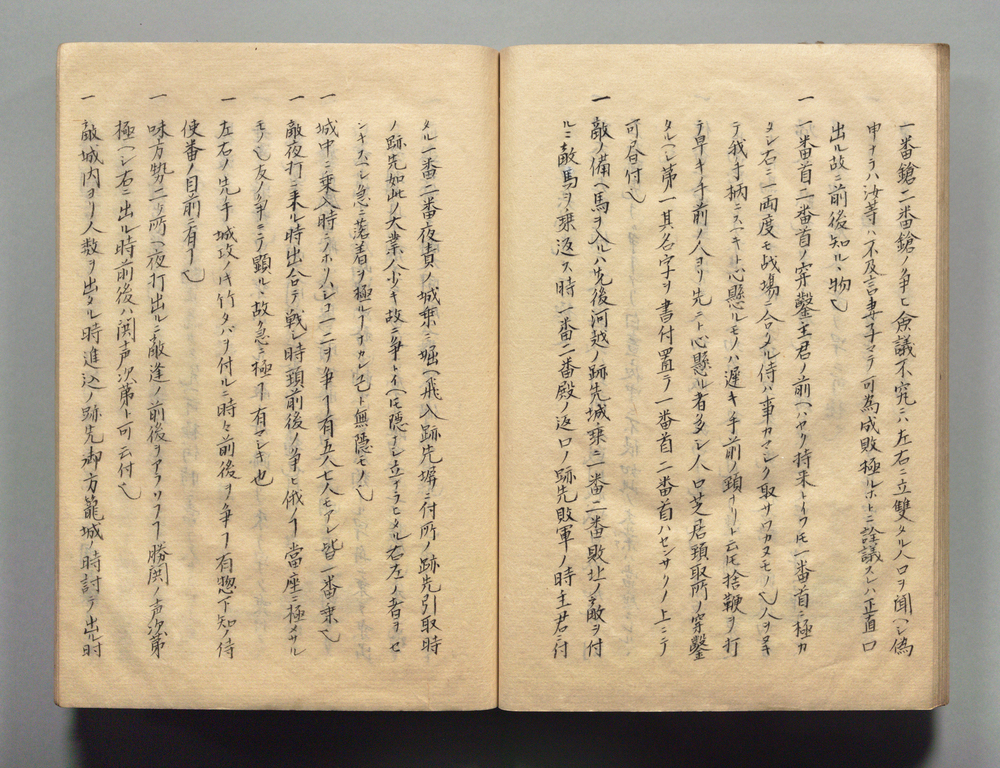 一番鎗二番鎗ノ争ヒ僉議不究ニハ左右ニ立雙タル人口ヲ聞ヘシ偽
申ヲラハ汝等ハ不及言妻子マテ可為成敗極ルホトニ詮議スレハ正直ロ
出ル故ニ前後知ルヽ物也
一 一番首二番首ノ穿鑿主君ノ前ヘハヤク持来トイヘ𪜈一番首ニ極カ
タシ右ニ一両度モ戦場ニ合タル侍ハ事カマシク取サワカヌモノ也人ヲヌキ
テ我手柄ニスヘキト心懸ルモノハ遅キ手前ノ頚ヲトリト云𪜈捨鞭ヲ打
テ早キ手前ノ人ヨリ先ニト心懸ル者多シ人口芝居頚取所ノ穿鑿
タルヘシ第一其名字ヲ書付置テ一番首二番首ハセンサクノ上ニテ
可昼付也
一 敵ノ備ヘ馬ヲ入ルハ先後河越ノ跡先城乗二一番二番敗北ノ敵ヲ付
ルニ敵馬ヲ乗返ス時一番二番殿ノ返口ノ跡先敗軍ノ時主君ニ付
タル一番二番夜責ノ城乗ニ堀ヘ飛入跡先塀ニ付所ノ跡先引取時
ノ跡先如此ノ大業人少キ故ニ争トイヘ𪜈隠ナシ立ナラヒタル右左ノ者ヲセ
シキスヘシ急ニ落着ヲ極ルヿナカレ乞ト無隠モノ也
一 城中ニ乗入時ニノホリハシコ一ニヲ争ヿ有五人七人モアレ皆一番乗也
一 敵夜打ニ来ル時出合テ戦シ時頚前後ノ争ヒ俄ノヿ當座ニ極メサル
モノ也友ノ争ニテ顕ルヽ故急ニ極ヿ有マシキ也
一 左右ノ先手城攻ノ𪜈竹タバヲ付ルニ時々前後ヲ争ヿ有惣下知ノ侍
使番ノ目前ニ有ヿ也
一 味方勢二立所ヘ夜打出ルニ敵逢ノ前後ヲアラソフヿ勝閧ノ声次第
極ヘシ右ニ出ル時前後ハ閧声次第ト可云付也
一 敵城内ヨリ人数ヲ出タル時進込ノ跡先御方籠城ノ時討テ出ル時